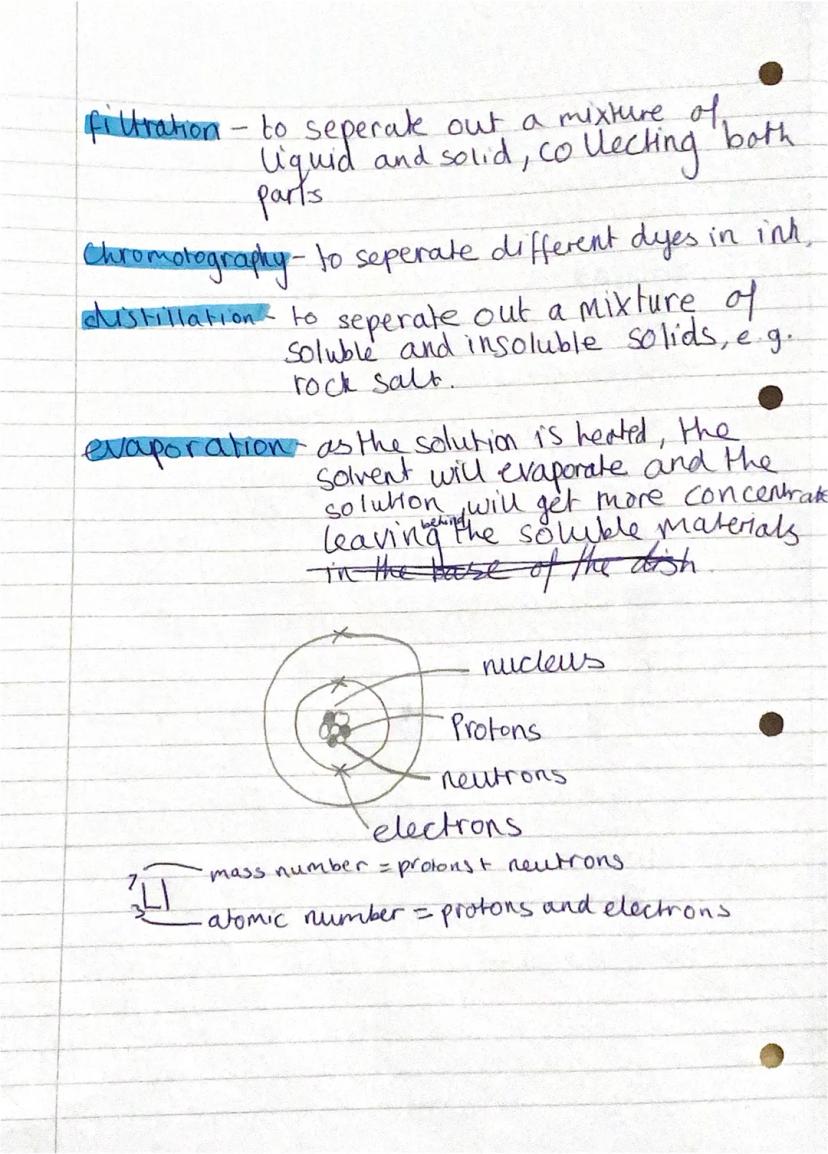 filtration - to seperate out a mixture of
liquid and solid, collecting both
parts
Chromotography - to seperate different dyes in ink.
distillation - to seperate out a mixture of
soluble and insoluble solids, e.g.
rock salt.
evaporation - as the solution is heated, the
solvent will evaporate and the
solution will get more concentrate
leaving behind the soluble materials
in the base of the dish.
nucleus
Protons
neutrons
electrons
mass number = protons + neutrons
7
Li
3
atomic number = protons and electrons